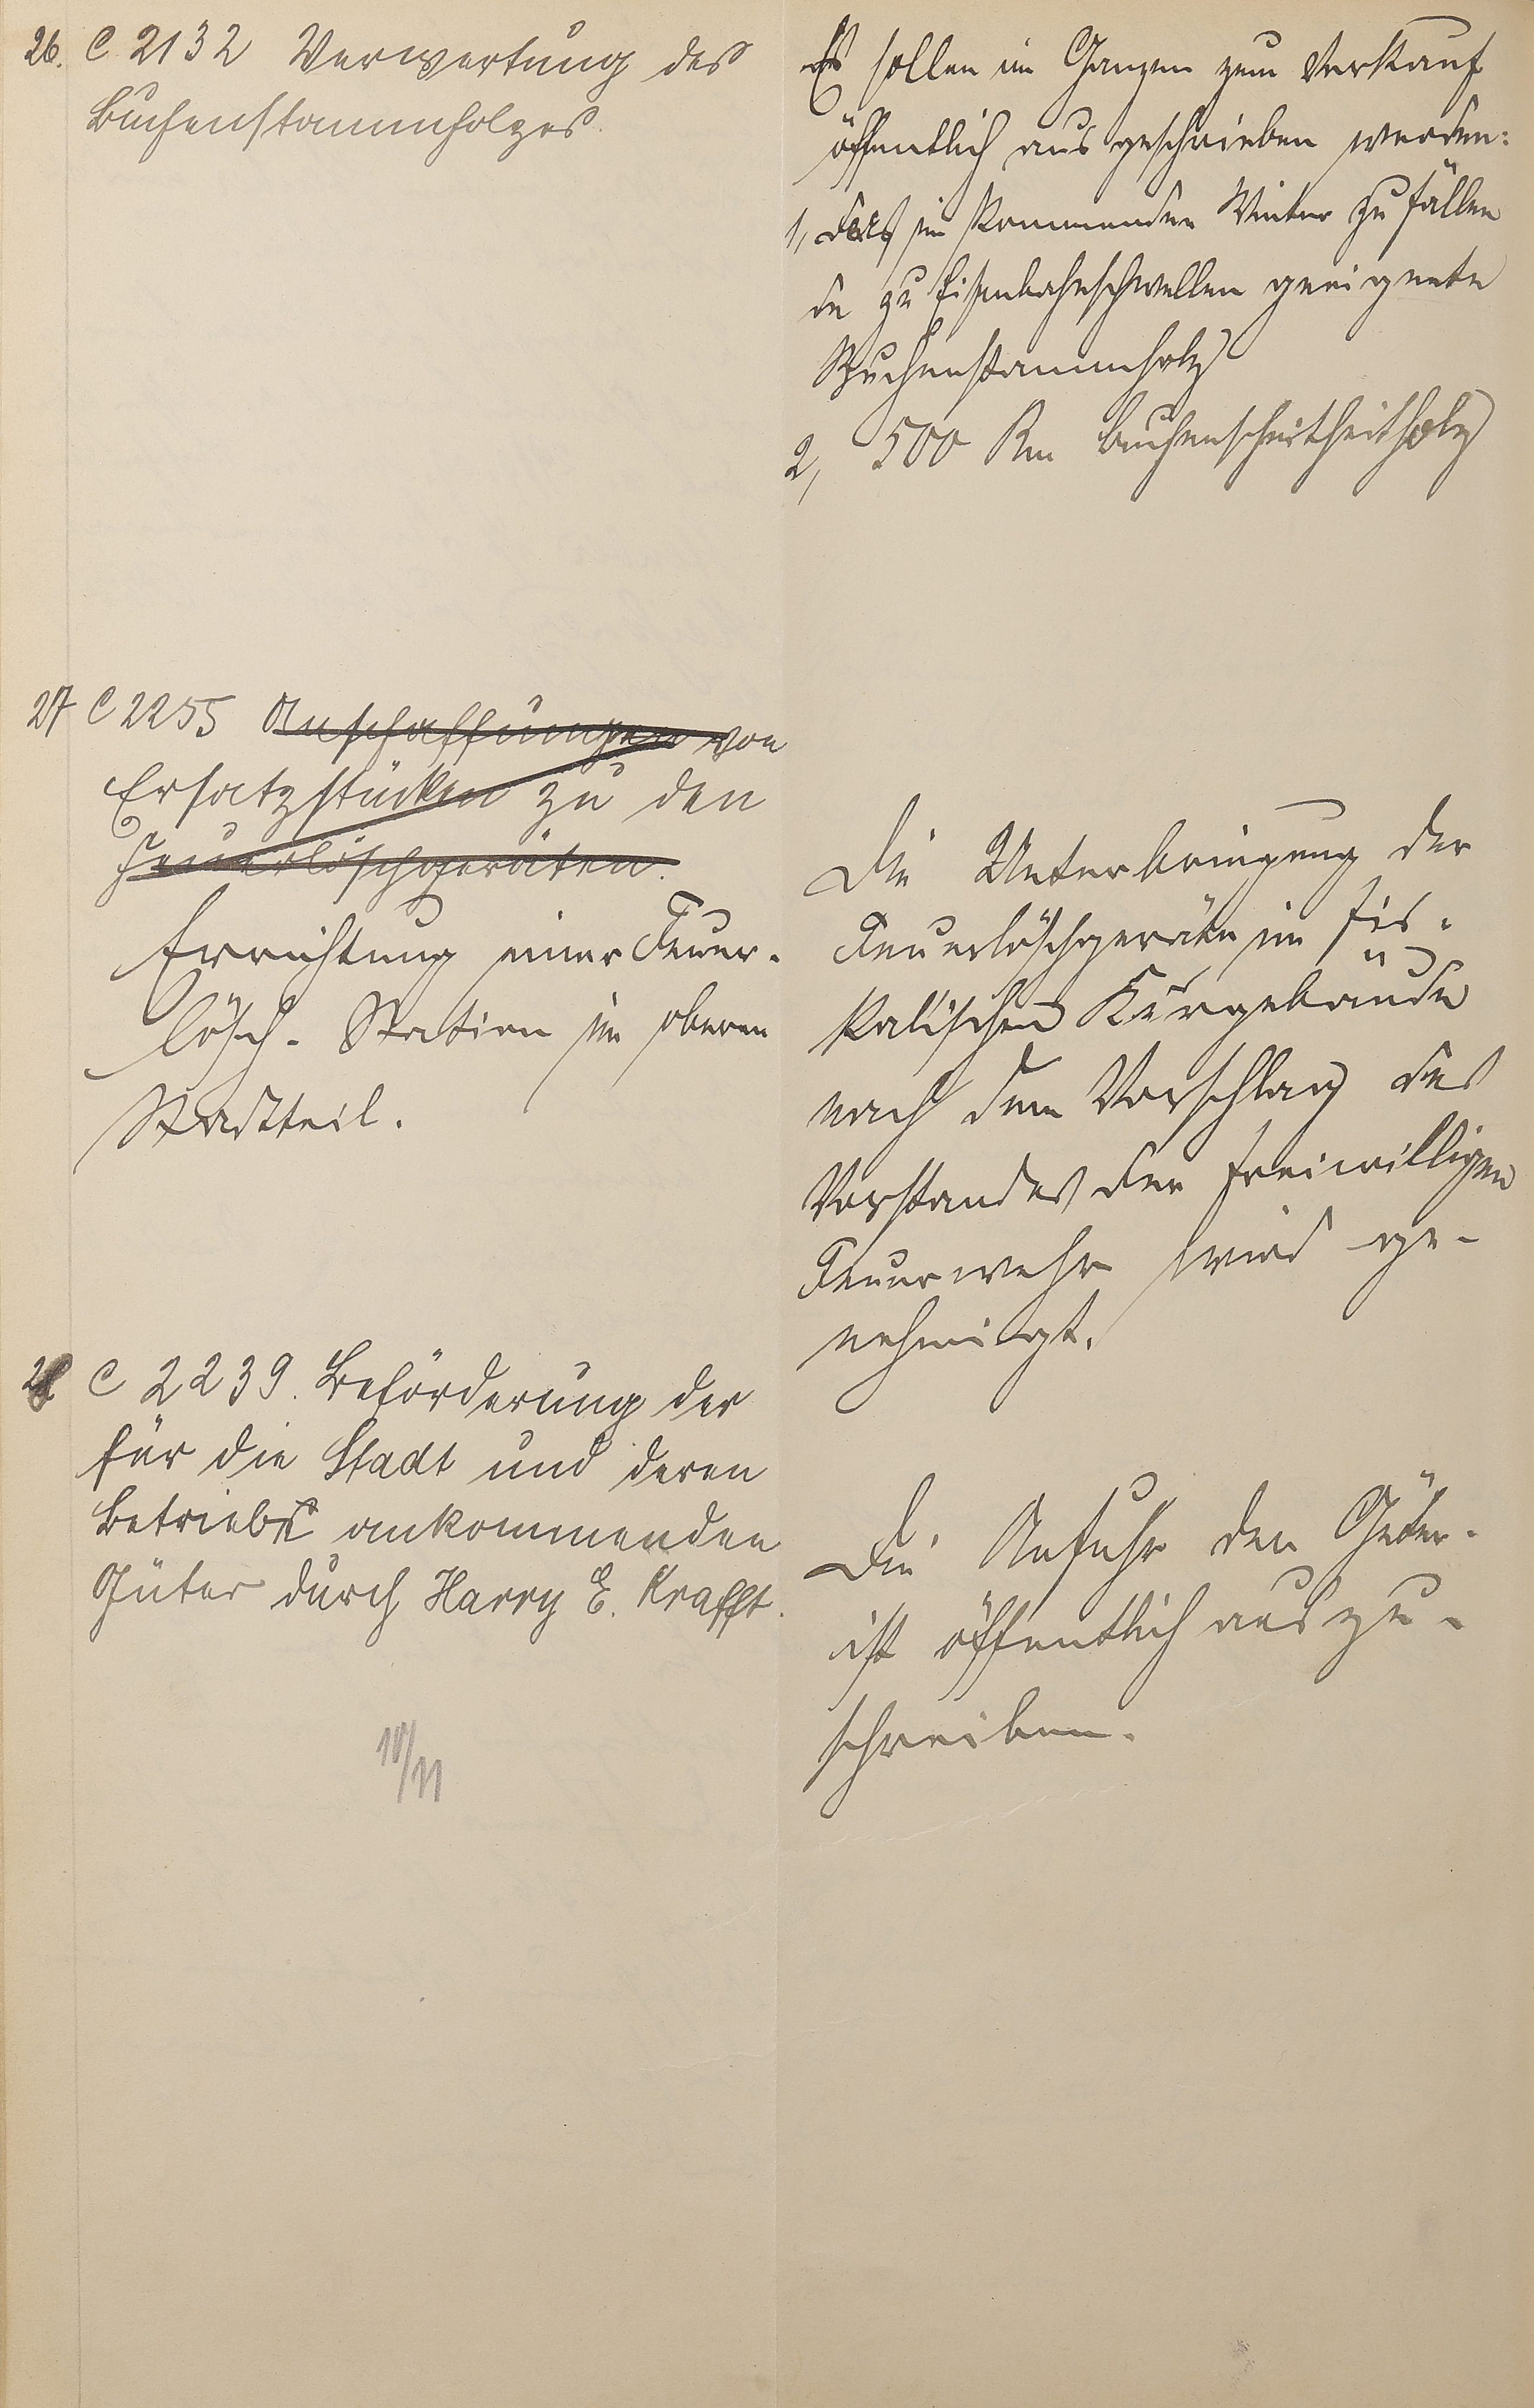 26. C 2132 Verwertung des
Buchenstammholzes.
Es sollen im Ganzen zum Verkauf
öffentlich ausgeschrieben werden:
1, das im kommenden Winter zu fällen
de zu Eisenbahnschwellen geeignete
Buchenstammholz
2, 500 Rm Buchenscheitholz
27 C 2255 Anschaffungen von
Ersatzstücken zu den
Feuerlöschgeräten.
Errichtung einer Feuer-
lösch-Station im oberen
Stadtteil.
Die Unterbringung der
Feuerlöschgeräte im fis-
kalischen Kurgebäude
nach dem Vorschlag des
Vorstandes der freiwilligen
Feuerwehr wird ge-
nehmigt.
28 C 2239. Beförderung der
für die Stadt und deren
Betriebe ankommenden
Güter durch Harry E. Krafft.
Die Anfuhr der Güter
ist öffentlich auszu-
schreiben.
10/11